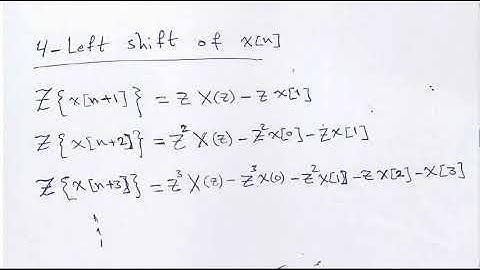 4-Left shift of x[n]
Z{x[n+1]} = z X(z) - z x[1]
Z{x[n+2]} = z² X(z) - z² x[0] - z x[1]
Z{x[n+3]} = z³ X(z) - z³ x(0) - z² x[1] - z x[2] - x[3]